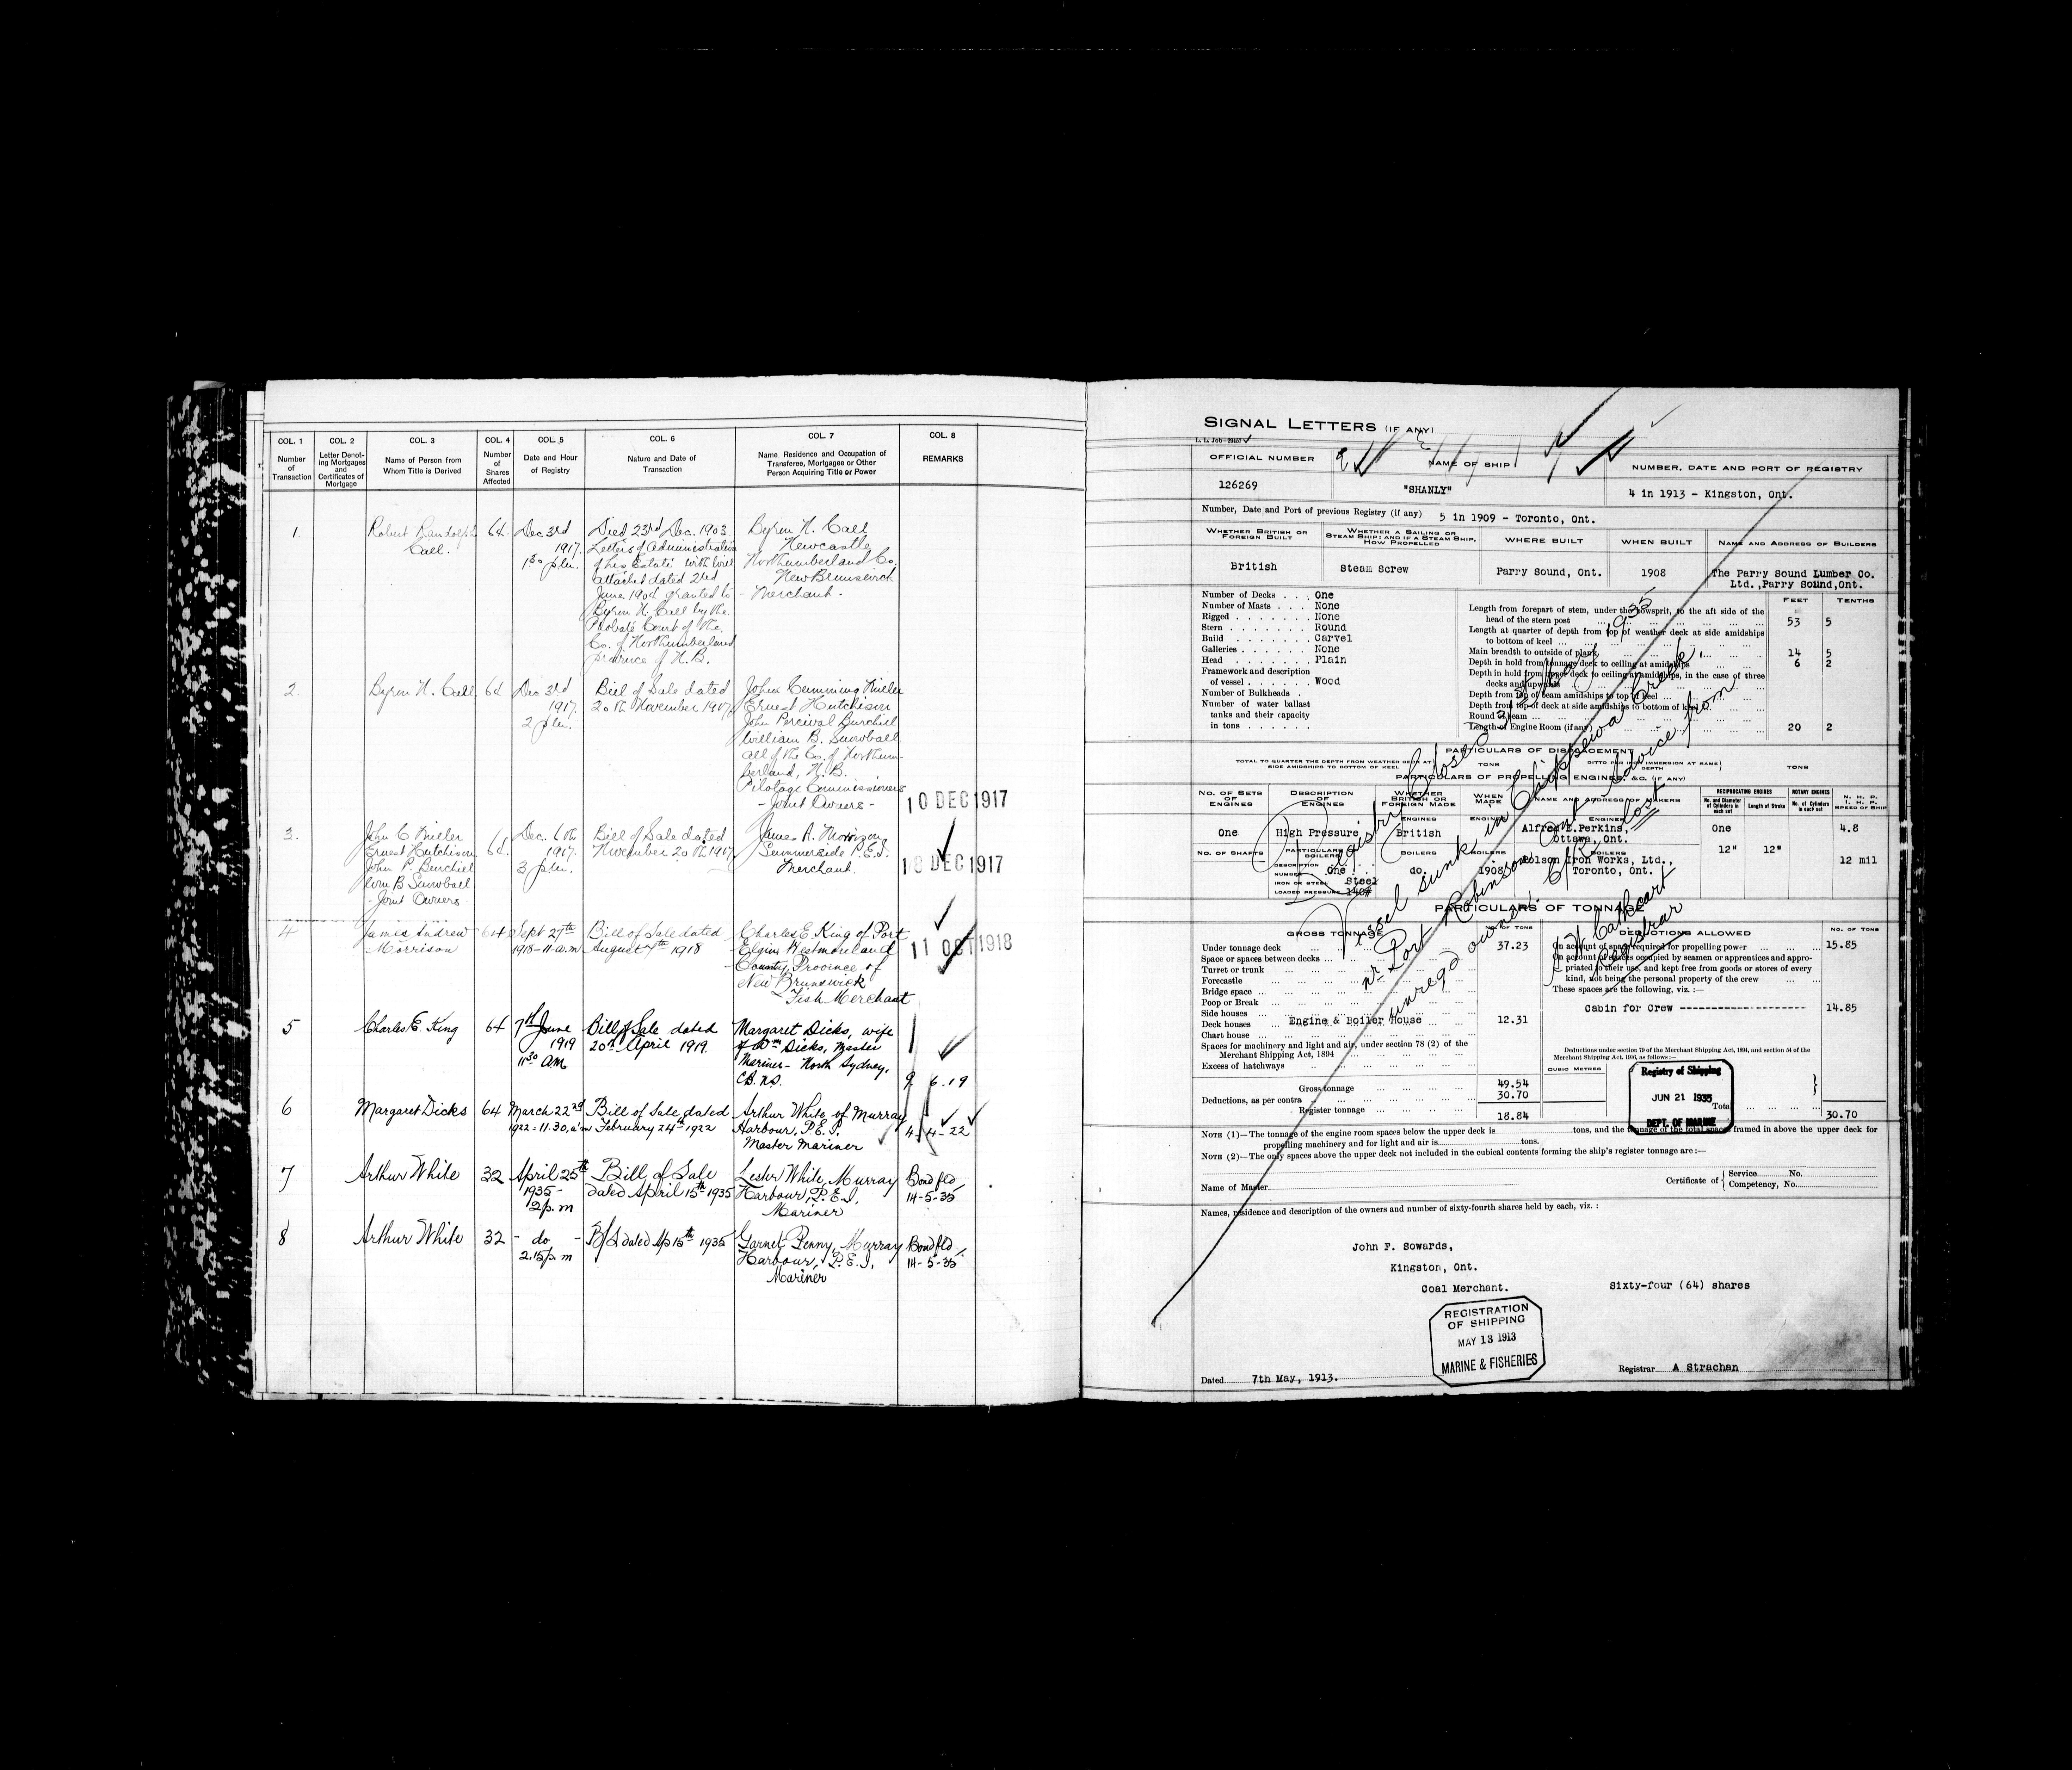 COL. 1
Number
of
Transaction
COL. 2
Letter Denot-
ing Mortgages
and
Certificates of
Mortgage
COL. 3
Name of Person from
Whom Title is Derived
COL. 4
Number
of
Shares
Affected
COL. 5
Date and Hour
of Registry
COL. 6
Nature and Date of
Transaction
COL. 7
Name, Residence and Occupation of
Transferee, Mortgagee or Other
Person Acquiring Title or Power
COL. 8
REMARKS
1.
Robert Randolph
Call.
64.
Dec 3rd
1917.
1 30 p.m.
Died 23rd Dec. 1903
Letters of Administration
of his Estate with will
attached dated 2nd
June 1904 granted to
Byron N. Call by the
Probate Court of the
Co. of Northumberland
province of N.B.
Byron N. Call
Newcastle
Northumberland Co.
New Brunswick
- Merchant -
2.
Byron N. Call
64
Dec 3rd
1917.
2 p.m.
Bill of Sale dated
20th November 1917
John Cumming Miller
Ernest Hutchison
John Percival Burchill
William B. Snowball
all of the Co. of Northum-
berland, N.B.
Pilotage Commissioners
- Joint Owners -
10 DEC 1917
3.
John C Miller
Ernest Hutchison
John P. Burchill
Wm B Snowball
- Joint Owners
64.
Dec. 6th
1917.
3 p.m.
Bill of Sale dated
November 20th 1917
James A. Morrison
Summerside P.E.I.
Merchant.
18 DEC 1917
4
James Andrew
Morrison
64
Sept 27th
1918-11 a.m
Bill of Sale dated
August 7th 1918
Charles E. King of Port
Elgin Westmorland
County, Province of
New Brunswick
Fish Merchant
11 OCT 1918
5
Charles E. King
64
7th June
1919
11 30 AM
Bill of Sale dated
20th April 1919.
Margaret Dicks, wife
of Wm Dicks, Master
Mariner- North Sydney,
C.B. N.S.
9 6.19
6
Margaret Dicks
64
March 22nd
1922-11.30, a'm
Bill of Sale, dated
February 24th 1922
Arthur White, of Murray
Harbour, P.E.I.
Master Mariner
4-4-22
7
Arthur White
32
April 25th
1935-
2p.m
Bill of Sale
dated April 15th 1935
Lester White, Murray
Harbour, P.E.I.
Mariner
Bond fld
14-5-35
8
Arthur White
32
- do -
2.15p.m
B/S dated Ap 15th 1935
Garnet Penny, Murray
Harbour, P.E.I.
Mariner
Bond fld
14-5-35
SIGNAL LETTERS (IF ANY)
OFFICIAL NUMBER
NAME OF SHIP
NUMBER, DATE AND PORT OF REGISTRY
126269
"SHANLY"
4 in 1913 - Kingston, Ont.
Number, Date and Port of previous Registry (if any) 5 in 1909 - Toronto, Ont.
WHETHER BRITISH OR
FOREIGN BUILT
WHETHER A SAILING OR
STEAM SHIP; AND IF A STEAM SHIP,
HOW PROPELLED
WHERE BUILT
WHEN BUILT
NAME AND ADDRESS OF BUILDERS
British
Steam Screw
Parry Sound, Ont.
1908
The Parry Sound Lumber Co.
Ltd.,Parry Sound,Ont.
Number of Decks . . . One
Number of Masts . . . None
Rigged . . . . . . . None
Stern . . . . . . . . Round
Build . . . . . . . . Carvel
Galleries . . . . . . None
Head . . . . . . . . Plain
Framework and description
of vessel . . . . . . . Wood
Number of Bulkheads .
Number of water ballast
tanks and their capacity
in tons . . . . . . .
FEET
TENTHS
Length from forepart of stem, under the bowsprit, to the aft side of the
head of the stern post 53 5
Length at quarter of depth from top of weather deck at side amidships
to bottom of keel
Main breadth to outside of plank 14 5
Depth in hold from tonnage deck to ceiling at amidships 6 2
Depth in hold from upper deck to ceiling at amidships, in the case of three
decks and upwards
Depth from top of beam amidships to top of keel
Depth from top of deck at side amidships to bottom of keel
Round of beam
Length of Engine Room (if any) 20 2
PARTICULARS OF DISPLACEMENT
TOTAL TO QUARTER THE DEPTH FROM WEATHER DECK AT
SIDE AMIDSHIPS TO BOTTOM OF KEEL
TONS
DITTO PER INCH IMMERSION AT SAME
DEPTH
TONS
PARTICULARS OF PROPELLING ENGINES, &C. (IF ANY)
NO. OF SETS
OF
ENGINES
DESCRIPTION
OF
ENGINES
WHETHER
BRITISH OR
FOREIGN MADE
WHEN
MADE
NAME AND ADDRESS OF MAKERS
RECIPROCATING ENGINES
No. and Diameter
of Cylinders in
each set
Length of Stroke
ROTARY ENGINES
No. of Cylinders
in each set
N. H. P.
I. H. P.
SPEED OF SHIP
ENGINES
ENGINES
ENGINES
One
High Pressure
British
Alfred E.Perkins,
Ottawa, Ont.
One
12" 12"
4.8
12 mil
NO. OF SHAFTS
PARTICULARS OF
BOILERS
BOILERS
BOILERS
BOILERS
DESCRIPTION
NUMBER One
IRON OR STEEL Steel
LOADED PRESSURE 140#
do.
1908
Polson Iron Works, Ltd.,
Toronto, Ont.
PARTICULARS OF TONNAGE
GROSS TONNAGE
NO. OF TONS
Under tonnage deck 37.23
Space or spaces between decks
Turret or trunk
Forecastle
Bridge space
Poop or Break
Side houses
Deck houses Engine & Boiler House 12.31
Chart house
Spaces for machinery and light and air, under section 78 (2) of the
Merchant Shipping Act, 1894
Excess of hatchways
Gross tonnage 49.54
Deductions, as per contra 30.70
Register tonnage 18.84
DEDUCTIONS ALLOWED
NO. OF TONS
On account of space required for propelling power 15.85
On account of spaces occupied by seamen or apprentices and appro-
priated to their use, and kept free from goods or stores of every
kind, not being the personal property of the crew
These spaces are the following, viz. :—
Cabin for Crew 14.85
Deductions under section 79 of the Merchant Shipping Act, 1894, and section 54 of the
Merchant Shipping Act, 1906, as follows :—
CUBIC METRES
Total 30.70
Registry of Shipping
JUN 21 1935
DEPT. OF MARINE
Registry Closed 31st May 1935
Vessel sunk in Chippewa Creek,
nr Port Robinson Ont Advice from
unreg'd owner.
lost
Cathcart
Registrar
NOTE (1)—The tonnage of the engine room spaces below the upper deck is tons, and the tonnage of the total spaces framed in above the upper deck for
propelling machinery and for light and air is tons.
NOTE (2)—The only spaces above the upper deck not included in the cubical contents forming the ship's register tonnage are :—
Name of Master
Certificate of
Service No.
Competency, No.
Names, residence and description of the owners and number of sixty-fourth shares held by each, viz. :
John F. Sowards,
Kingston, Ont.
Coal Merchant. Sixty-four (64) shares
REGISTRATION
OF SHIPPING
MAY 13 1913
MARINE & FISHERIES
Dated 7th May, 1913.
Registrar A Strachan